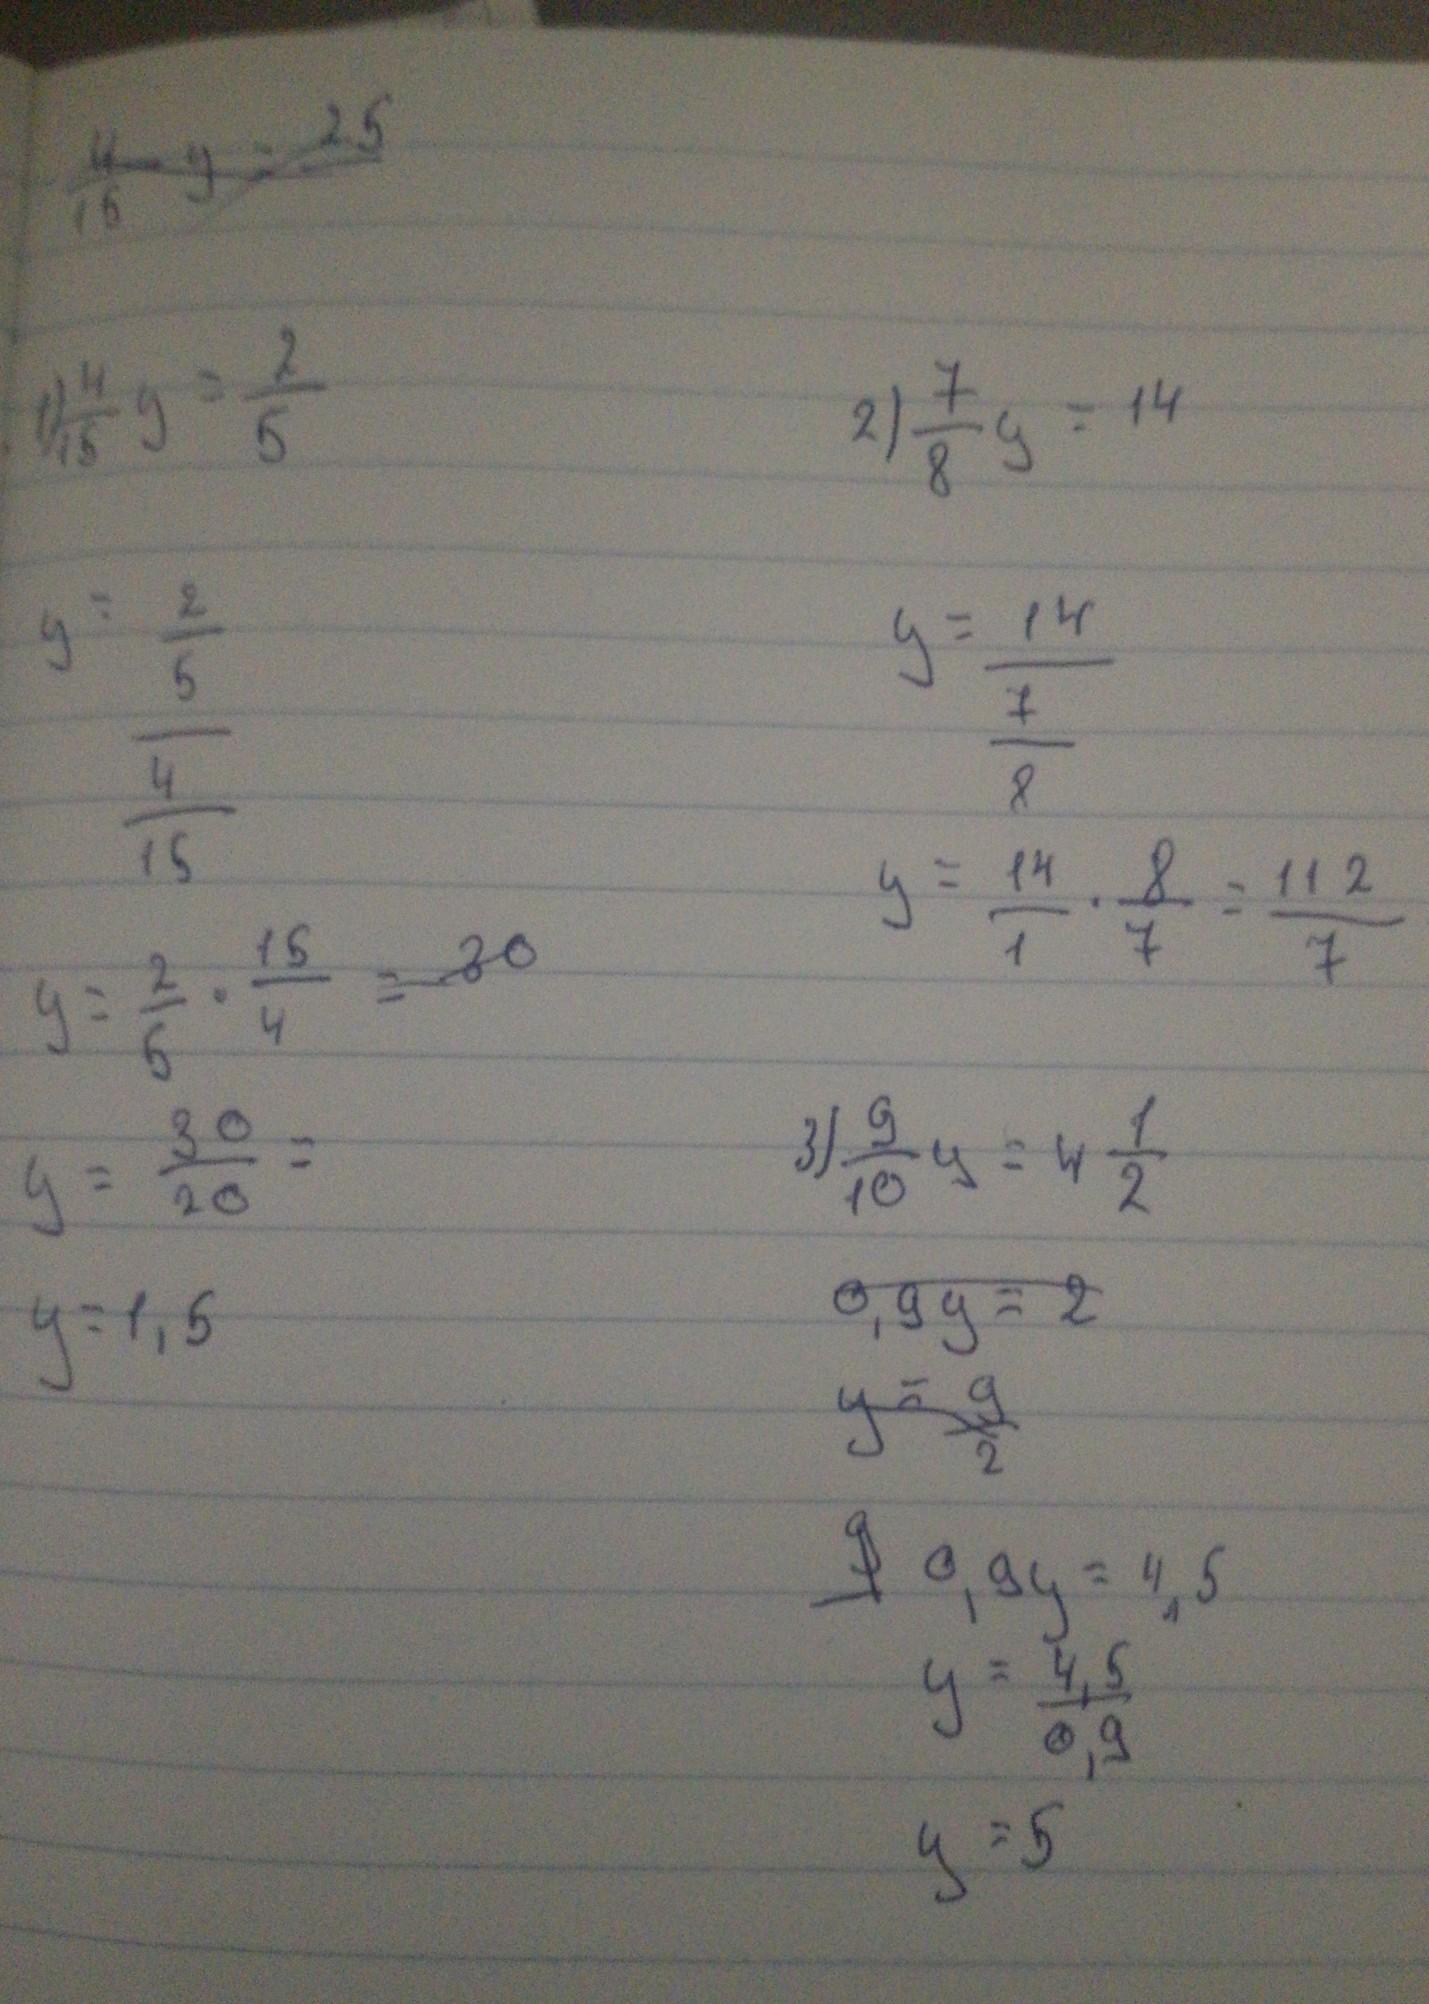 4/15 y = 25
1) 4/15 y = 2/5
y = 2/5 / 4/15
y = 2/5 · 15/4 = 30
y = 30/20 =
y = 1,5
2) 7/8 y = 14
y = 14 / 7/8
y = 14/1 · 8/7 = 112/7
3) 9/10 y = 4 1/2
0,9y = 2
y = 9/2
0,9y = 4,5
y = 4,5/0,9
y = 5